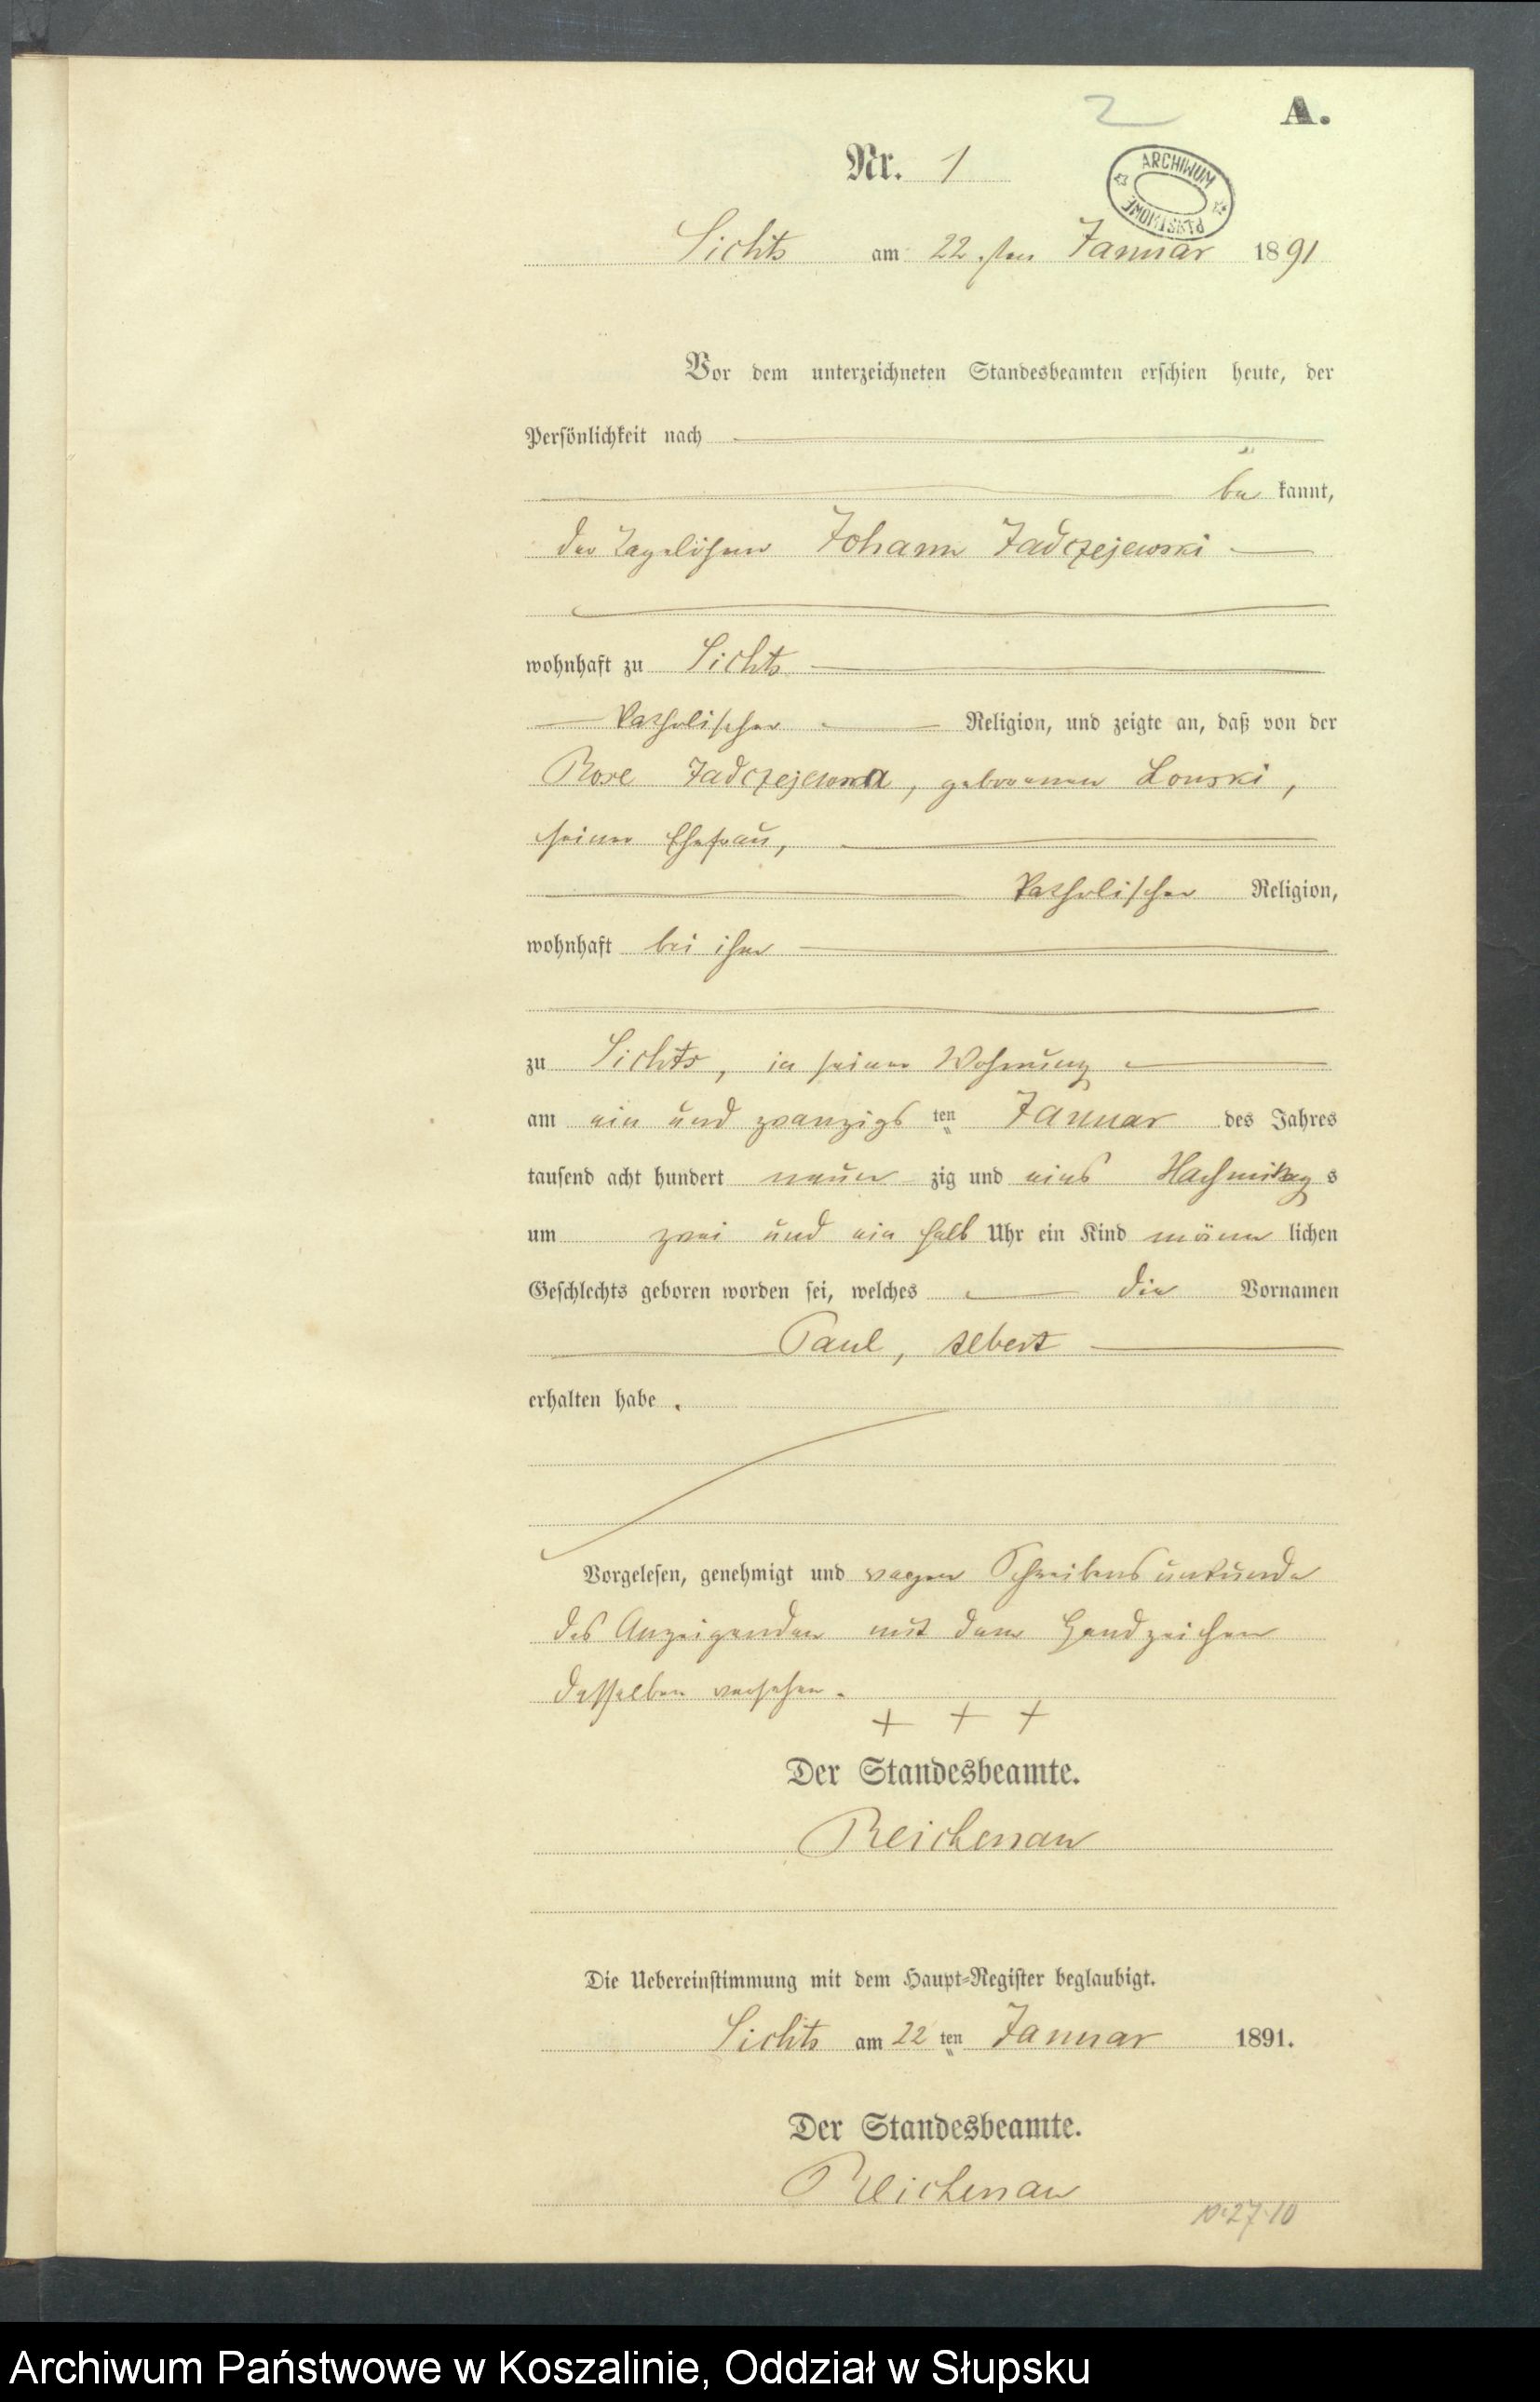 2
A.
Nr. 1
ARCHIWUM PAŃSTWOWE
Lichts am 22 sten Januar 1891
Vor dem unterzeichneten Standesbeamten erschien heute, der
Persönlichkeit nach
be kannt,
der Tagelöhner Johann Jadczejewski
wohnhaft zu Lichts
katholischer Religion, und zeigte an, daß von der
Rose Jadczejewska, geborenen Lonski,
seiner Ehefrau,
katholischer Religion,
wohnhaft bei ihm
zu Lichts, in seiner Wohnung
am ein und zwanzigs ten Januar des Jahres
tausend acht hundert neun zig und eins Nachmittag s
um zwei und ein halb Uhr ein Kind männ lichen
Geschlechts geboren worden sei, welches die Vornamen
Paul, Albert
erhalten habe.
Vorgelesen, genehmigt und wegen Schreibensunkunde
des Anzeigenden mit dem Handzeichen
desselben versehen.
+ + +
Der Standesbeamte.
Reichenau
Die Uebereinstimmung mit dem Haupt-Register beglaubigt.
Lichts am 22 ten Januar 1891.
Der Standesbeamte.
Reichenau
Archiwum Państwowe w Koszalinie, Oddział w Słupsku